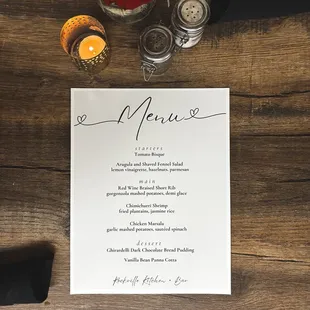 Menu
starters
Tomato Bisque
Arugula and Shaved Fennel Salad
lemon vinaigrette, hazelnuts, parmesan
main
Red Wine Braised Short Rib
gorgonzola mashed potatoes, demi glace
Chimichurri Shrimp
fried plantains, jasmine rice
Chicken Marsala
garlic mashed potatoes, sautéed spinach
dessert
Ghirardelli Dark Chocolate Bread Pudding
Vanilla Bean Panna Cotta
Rockville Kitchen + Bar